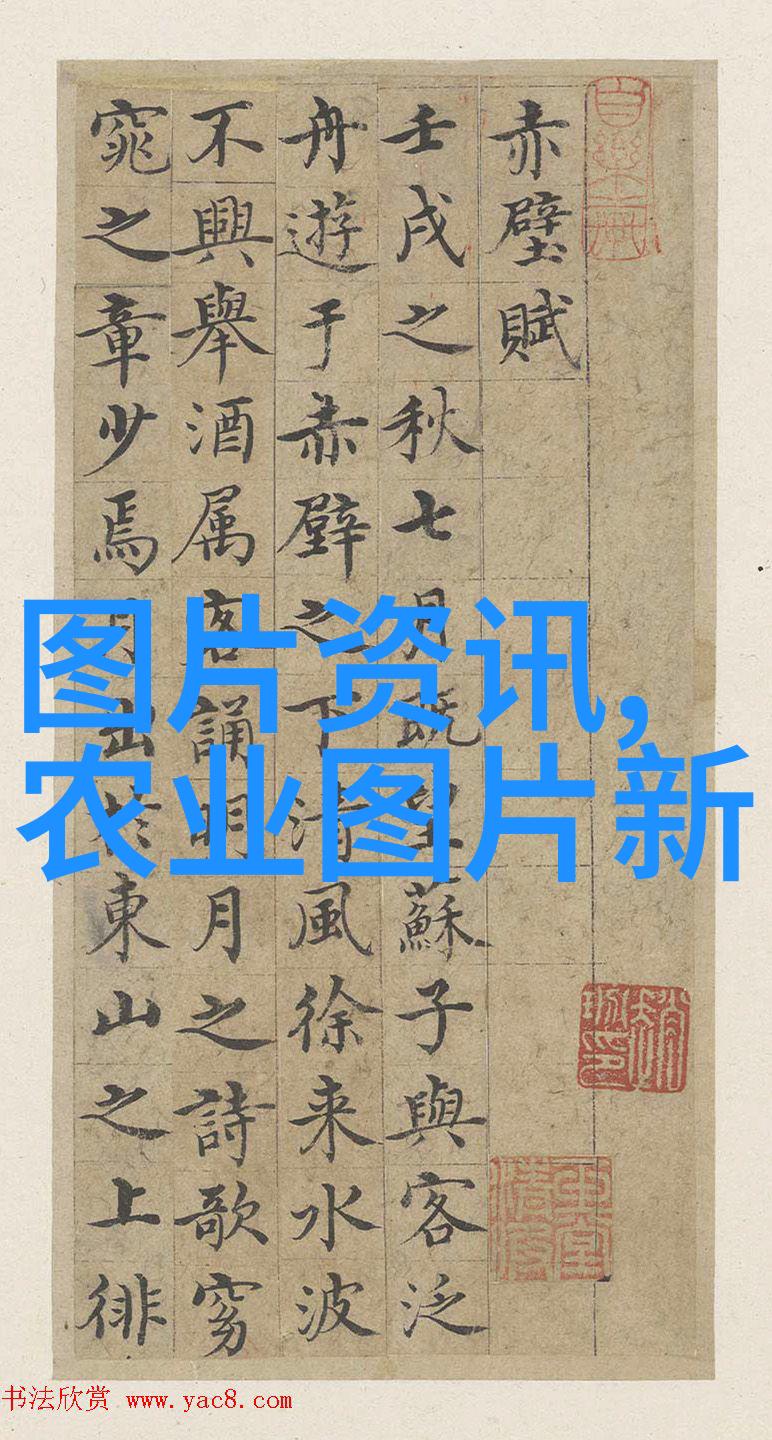 赤壁賦
壬戌之秋七月既望蘇子與客泛
舟遊于赤壁之下清風徐来水波
不興舉酒属客誦明月之詩歌窈
窕之章少焉月出於東山之上徘
图片资讯,
农业图片新
书法欣赏 www.yac8.com